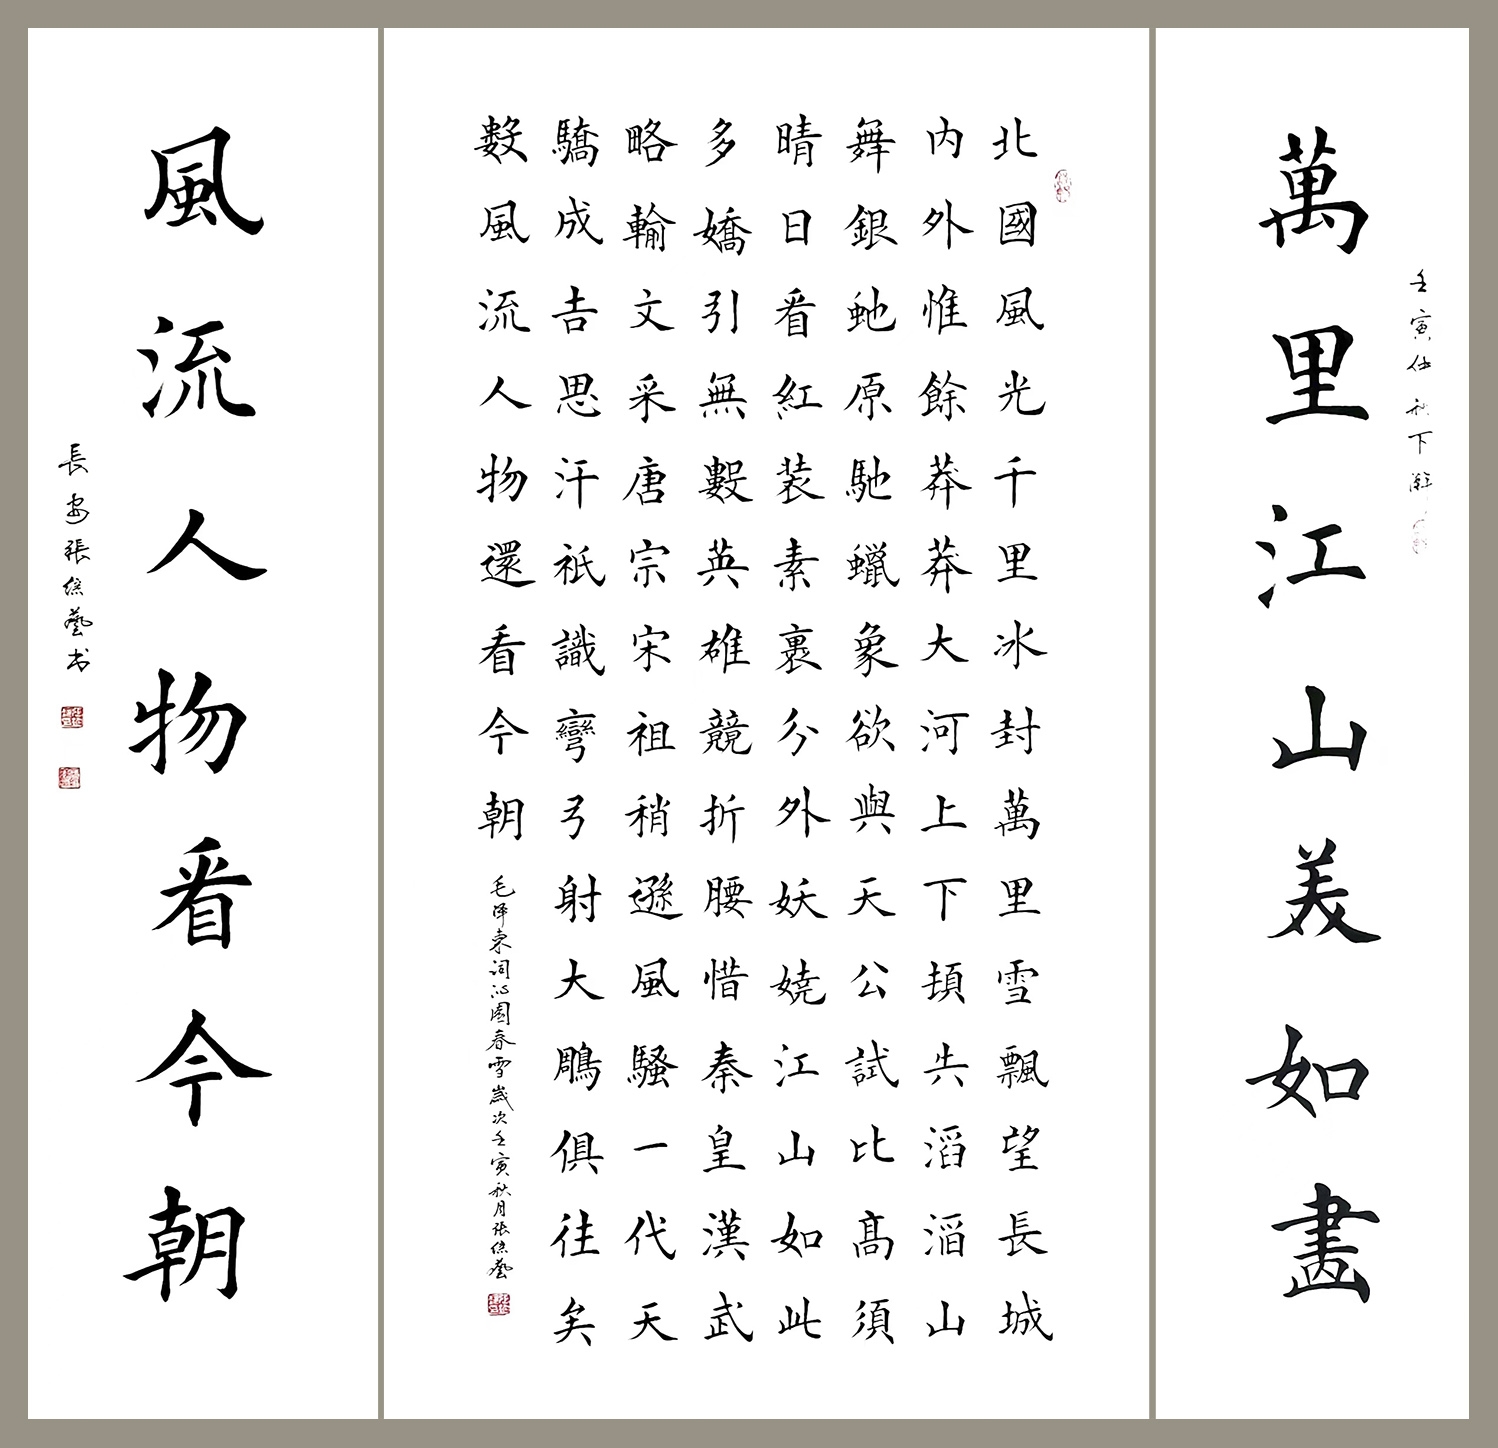 壬寅仲秋下澣
萬里江山美如畫
北國風光千里冰封萬里雪飄望長城
内外惟餘莽莽大河上下頓失滔滔山
舞銀虵原馳蠟象欲與天公試比髙須
晴日看紅装素裹分外妖嬈江山如此
多嬌引無數英雄競折腰惜秦皇漢武
略輸文采唐宗宋祖稍遜風騷一代天
驕成吉思汗祇識彎弓射大鵰俱往矣
數風流人物還看今朝
毛泽東词沁園春雪歲次壬寅秋月張藝
風流人物看今朝
長安張藝书